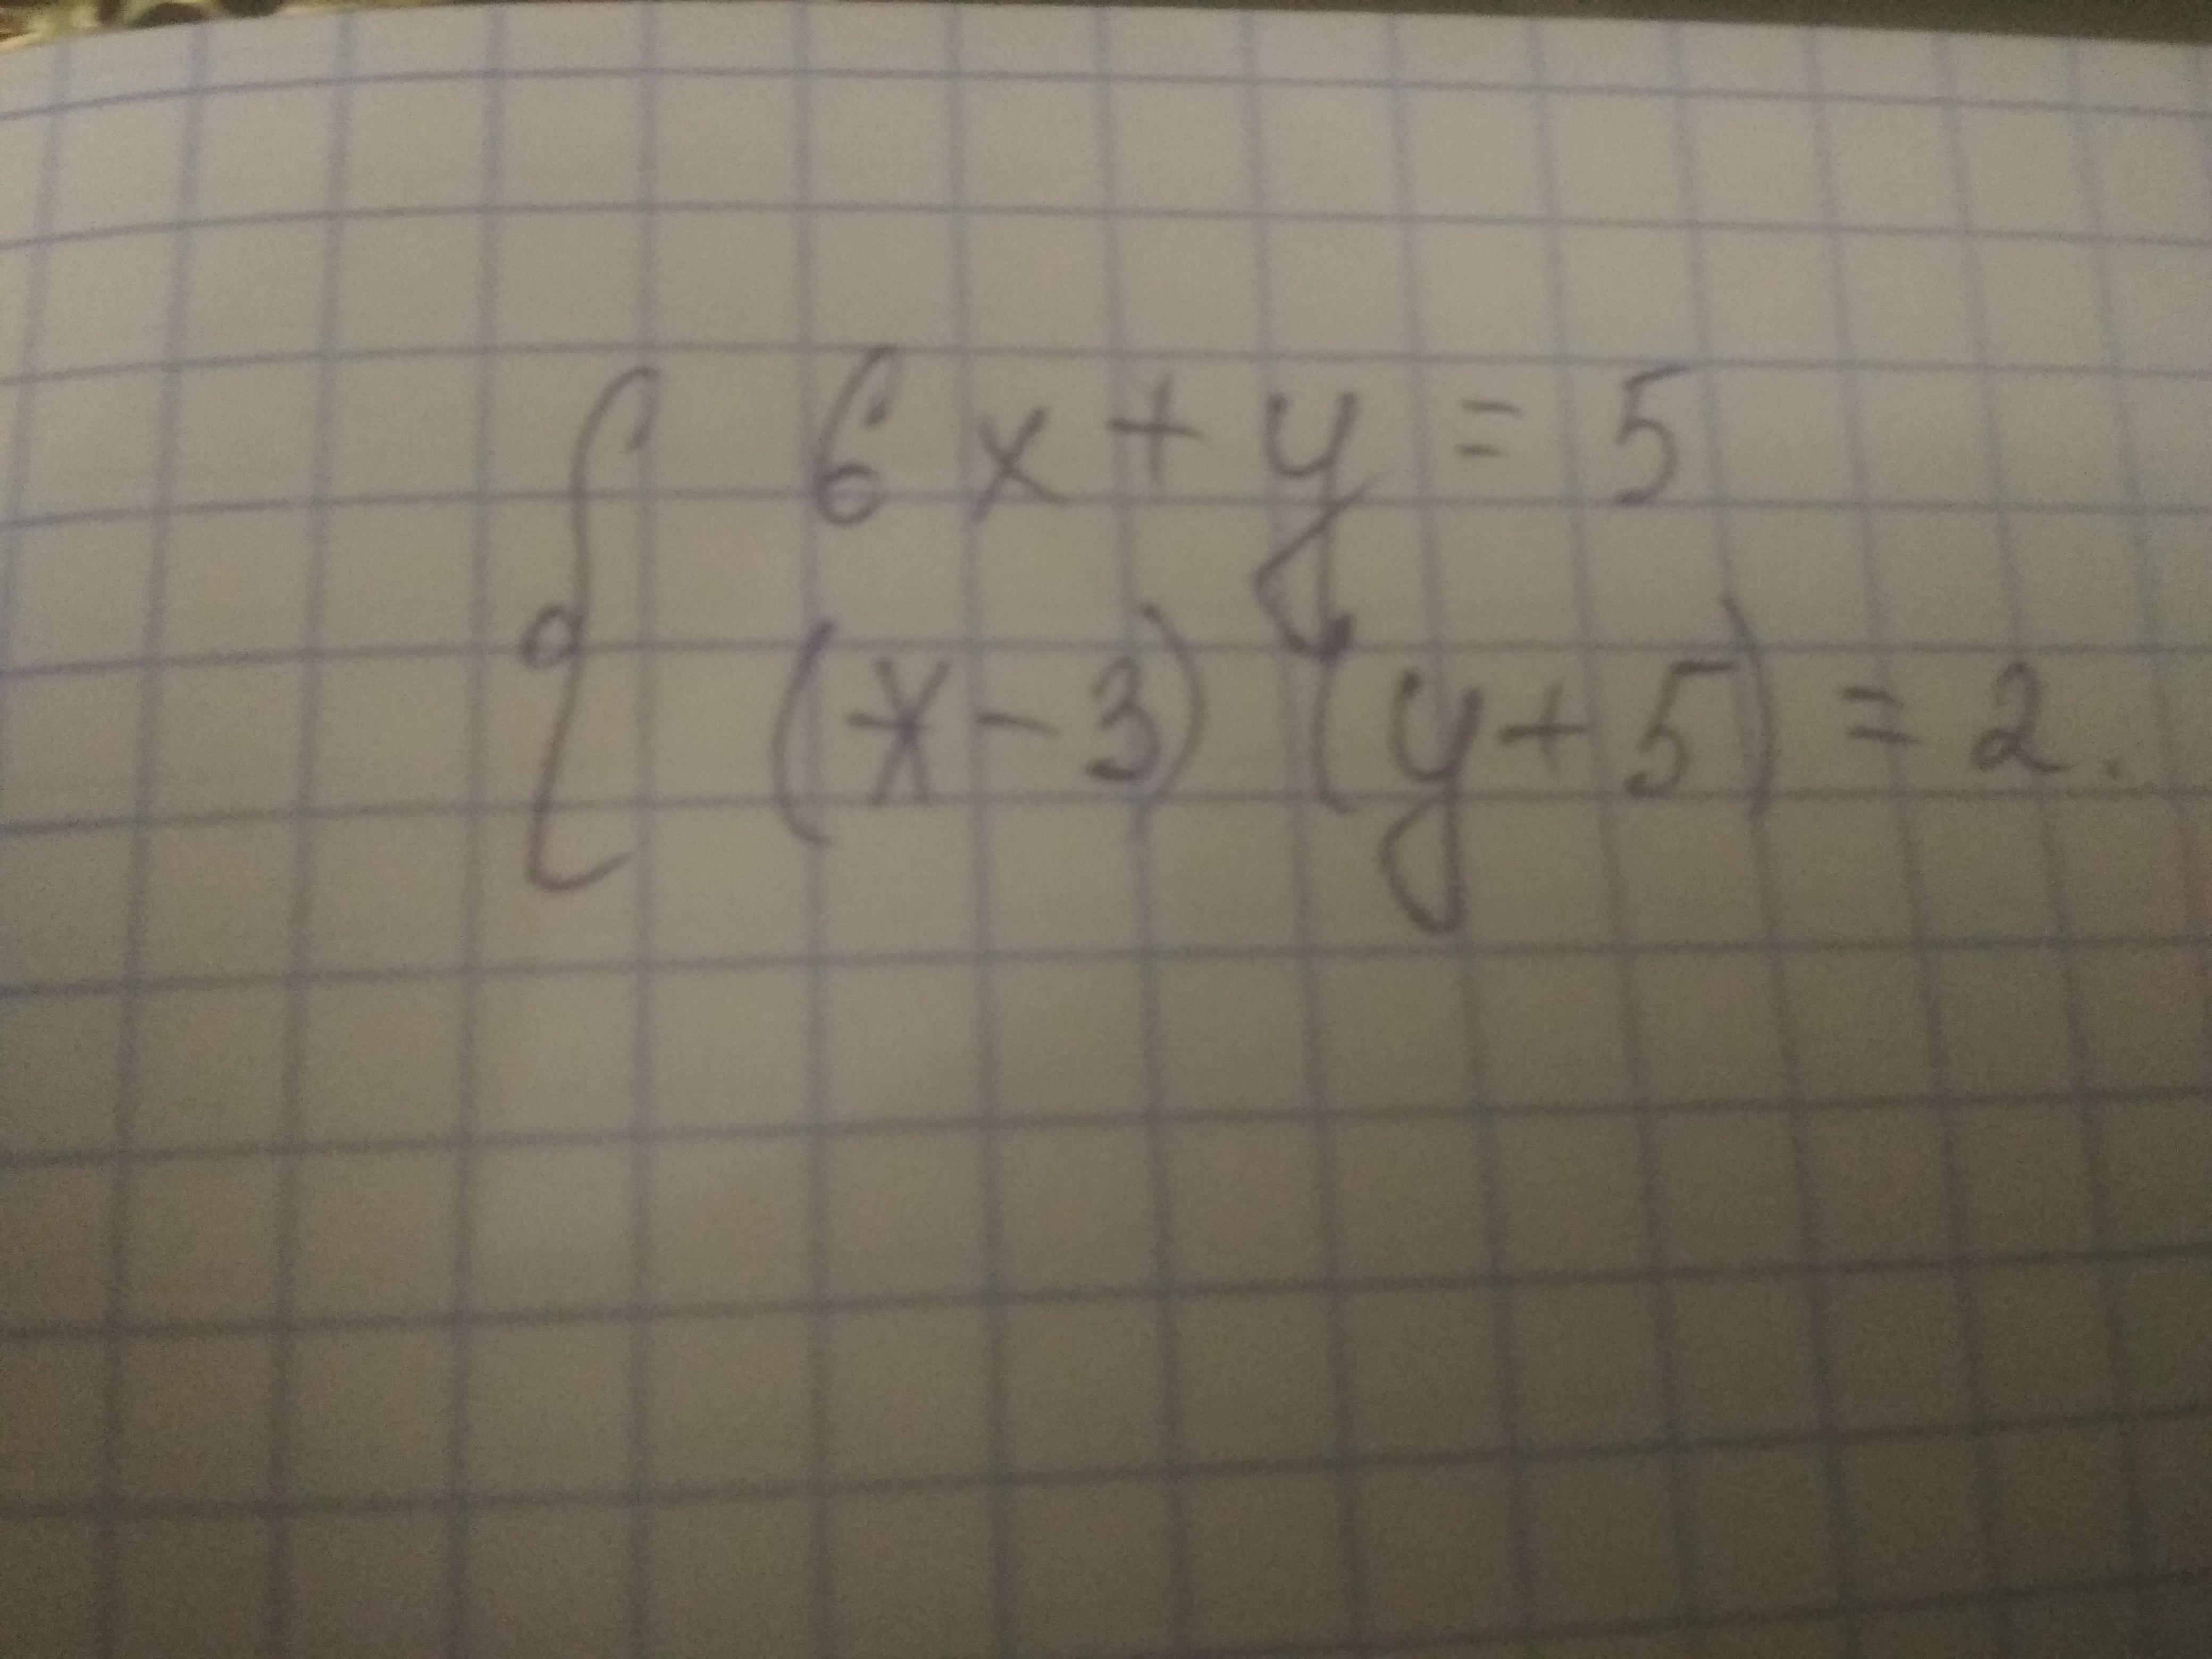 6x + y = 5
(x - 3) (y + 5) = 2.